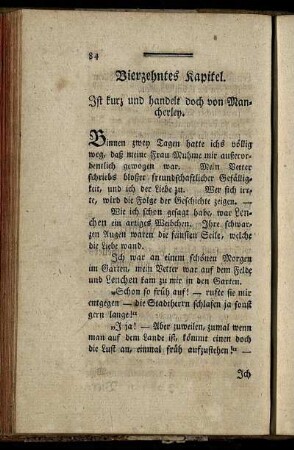 84
Vierzehntes Kapitel.
Ist kurz und handelt doch von Man-
cherley.
Binnen zwey Tagen hatte ichs völlig
weg, daß meine Frau Muhme mir außeror-
dentlich gewogen war. Mein Vetter
schriebs bloßer freundschaftlicher Gefällig-
keit, und ich der Liebe zu. Wer sich irr-
te, wird die Folge der Geschichte zeigen. —
Wie ich schon gesagt habe, war Len-
chen ein artiges Weibchen. Ihre schwar-
zen Augen waren die feinsten Seile, welche
die Liebe wand.
Ich war an einem schönen Morgen
im Garten, mein Vetter war auf dem Felde
und Lenchen kam zu mir in den Garten.
„Schon so früh auf! — rufte sie mir
entgegen — die Stadtherrn schlafen ja sonst
gern lange!“
„J ja! — Aber zuweilen, zumal wenn
man auf dem Lande ist, kömmt einen doch
die Lust an, einmal früh aufzustehen!“ —
Ich